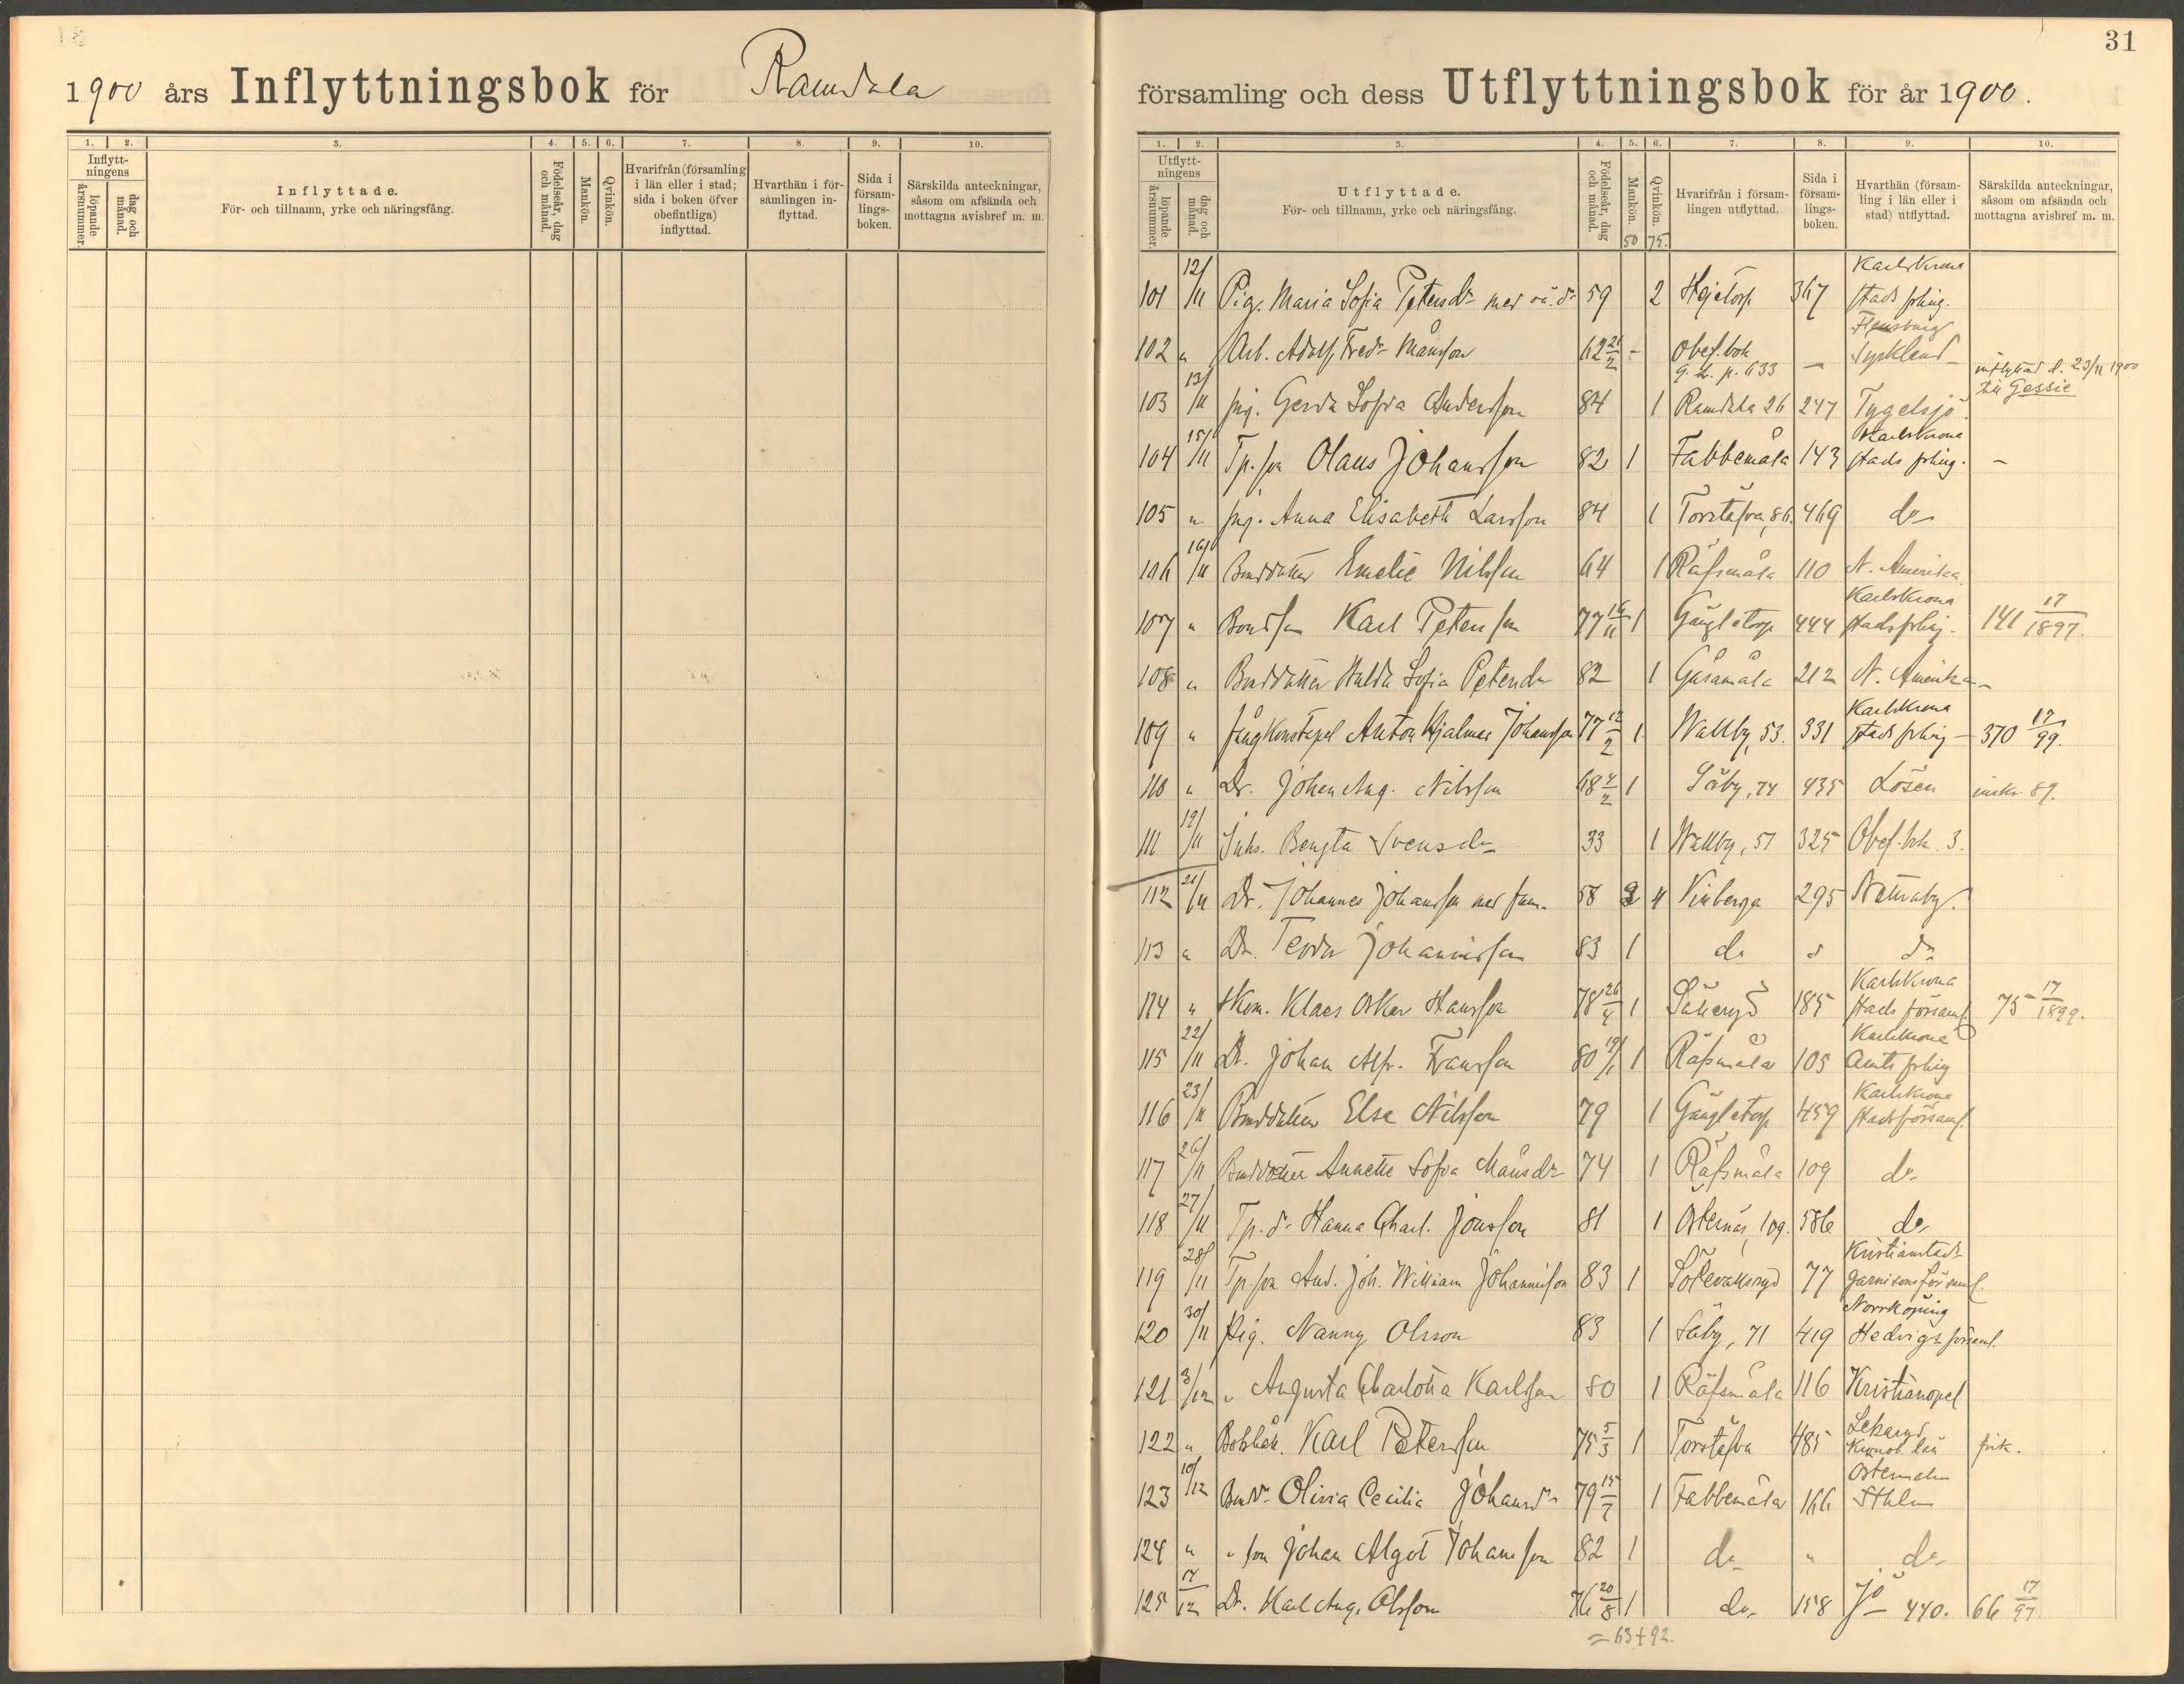 1900 års Inflyttningsbok för Ramdala
1. 2. 3. 4. 5. 6. 7. 8. 9. 10.
Inflytt-
ningens
löpande
årsnummer.
dag och
månad.
Inflyttade.
För- och tillnamn, yrke och näringsfång.
Födelseår, dag
och månad.
Mankön.
Qvinkön.
Hvarifrån (församling
i län eller i stad;
sida i boken öfver
obefintliga)
inflyttad.
Hvarthän i för-
samlingen in-
flyttad.
Sida i
försam-
lings-
boken.
Särskilda anteckningar,
såsom om afsända och
mottagna avisbref m. m.
31
församling och dess Utflyttningsbok för år 1900.
1. 2. 3. 4. 5. 6. 7. 8. 9. 10.
Utflytt-
ningens
löpande
årsnummer.
dag och
månad.
Utflyttade.
För- och tillnamn, yrke och näringsfång.
Födelseår, dag
och månad.
Mankön.
Qvinkön.
50 75.
Hvarifrån i försam-
lingen utflyttad.
Sida i
försam-
lings-
boken.
Hvarthän (försam-
ling i län eller i
stad) utflyttad.
Särskilda anteckningar,
såsom om afsända och
mottagna avisbref m. m.
101 12/11 Pig. Maria Sofia Petersdr med oä. dr 59 2 Hejetorp 367 Karlskrona stads förling.
102 " Arb. Adolf Fredr Månsson 62 21/2 - Obef. bok G. b. p. 633 — Flensburg Tyskland
103 13/11 pig. Gerda Sofia Andersson 84 1 Ramdala 26 247 Tygelsjö inflyttad d. 23/11 1900 till Gessie
104 15/11 Tp. son Olaus Johansson 82 1 Fäbbemåla 143 Karlskrona stads förling. -
105 " pig. Anna Elisabeth Larsson 84 1 Torstäfva, 86. 469 do
106 16/11 Bonddotter Emelie Nilsson 64 1 Räfsmåla 110 N. Amerika
107 " Bondson Karl Petersson 77 16/11 1 Gängletorp 444 Karlskrona stadsförling. 141 17/1897.
108 " Bonddotter Hulda Sofia Petersdr 82 1 Gåsamåla 212 N. Amerika -
109 " Jungkonstapel Anton Hjalmar Johansson 77 12/2 1 Wallby, 53. 331 Karlskrona stads förling - 370 17/99.
110 " Dr. Johan Aug. Nilsson 68 4/2 1 Säby, 74 435 Lösen inskr. 89.
111 19/11 Inhs. Bengta Svensdr 33 1 Wallby, 51 325 Obef. bok. 3.
112 21/11 Dr. Johannes Johansson med fam. 58 2 4 Vinberga 295 Nättraby.
113 " Dr. Teodor Johannisson 83 1 do d do
114 " Skom. Klaes Oskar Hansson 78 26/4 1 Säkeryd 185 Karlskrona stads församl. 75 17/1899.
115 22/11 Dr. Johan Alfr. Fransson 80 19/1 1 Räfsmåla 105 Karlskrona Amts förling
116 23/11 Bonddotter Else Nilsson 79 1 Gängletorp 459 Karlskrona stadsförsaml.
117 26/11 Bonddotter Annette Sofia Månsdr 74 1 Räfsmåla 109 do
118 27/11 Tp. dr Hanna Charl. Jonsson 81 1 Östernäs, 109. 586 do
119 28/11 Tp. son And. Joh. William Johannisson 83 1 77 Kristianstads garnisonsförsaml.
120 30/11 Pig. Nanny Olsson 83 1 Säby, 71 419 Norrköping Hedvigs församl.
121 3/12 " Augusta Charlotta Karlsson 80 1 Räfsmåla 116 Kristianopel
122 " Bokhåll. Karl Petersson 75 5/3 1 Torstäfva 485 Lekaryd Kronob. län frik.
123 10/12 Bonddr Olivia Cecilia Johansdr 79 15/7 1 Fäbbemåla 166 Östermalm Sthlm
124 " " son Johan Algot Johansson 82 1 do " do
125 17/12 Dr. Karl Aug. Olsson 76 20/8 1 do 158 Jö 440. 66 17/97
= 63 + 92.